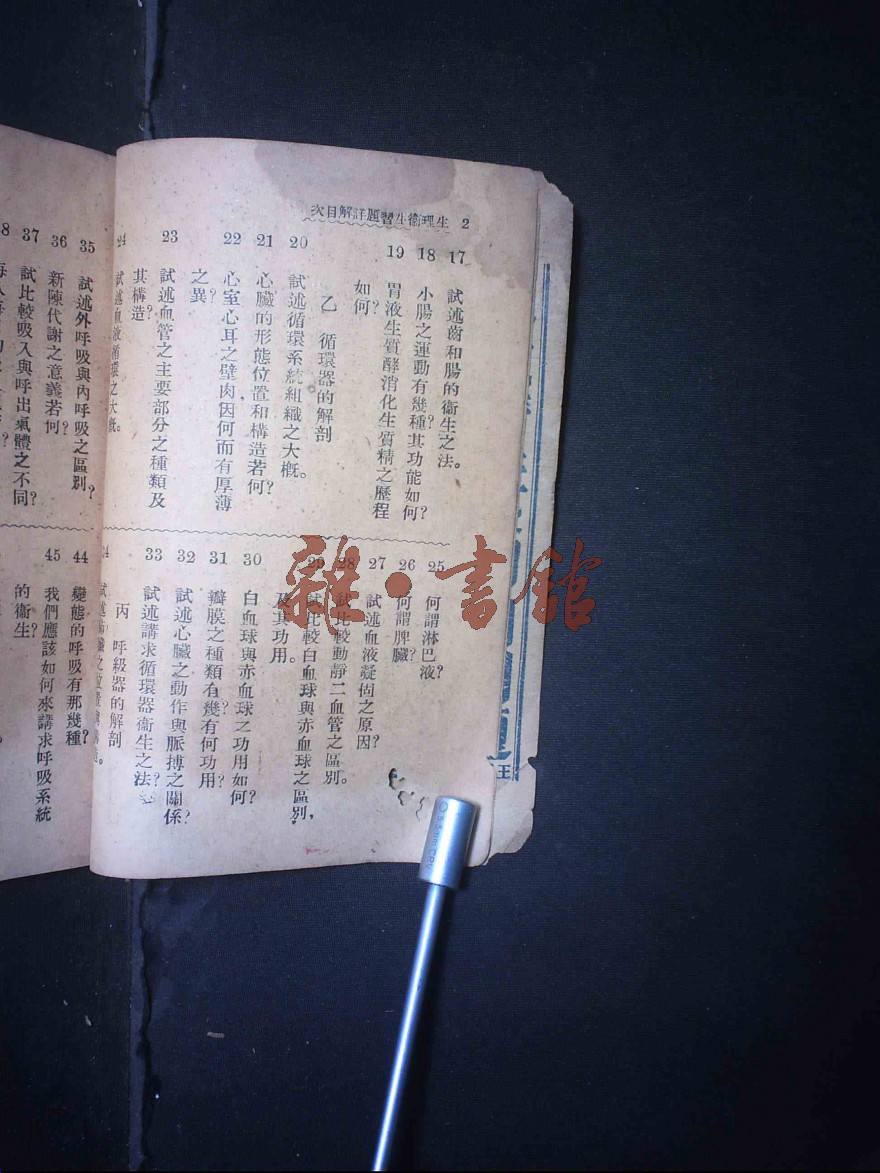 2 生理衛生習題詳解目次
17 試述齒和腸的衞生之法。
18 小腸之運動有幾種其功能如何?
19 胃液生質酵消化生質精之歷程
如何?
乙 循環器的解剖
20 試述循環系統組織之大槪。
21 心臟的形態位置和構造若何?
22 心室心耳之壁肉因何而有厚薄
之異?
23 試述血管之主要部分之種類及
其構造?
24 試述血液循環之大槪。
25 何謂淋巴液?
26 何謂脾臟?
27 試述血液凝固之原因?
28 試比較動靜二血管之區別。
29 試比較白血球與赤血球之區別,
及其功用。
30 白血球與赤血球之功用如何?
31 瓣膜之種類有幾有何功用?
32 試述心臟之動作與脈搏之關係?
33 試述講求循環器衞生之法?
丙 呼級器的解剖
35 試述外呼吸與內呼吸之區別?
36 新陳代謝之意義若何?
37 試比較吸入與呼出氣體之不同?
44 變態的呼吸有那幾種?
45 我們應該如何來講求呼吸系統
的衞生?
雜·書館